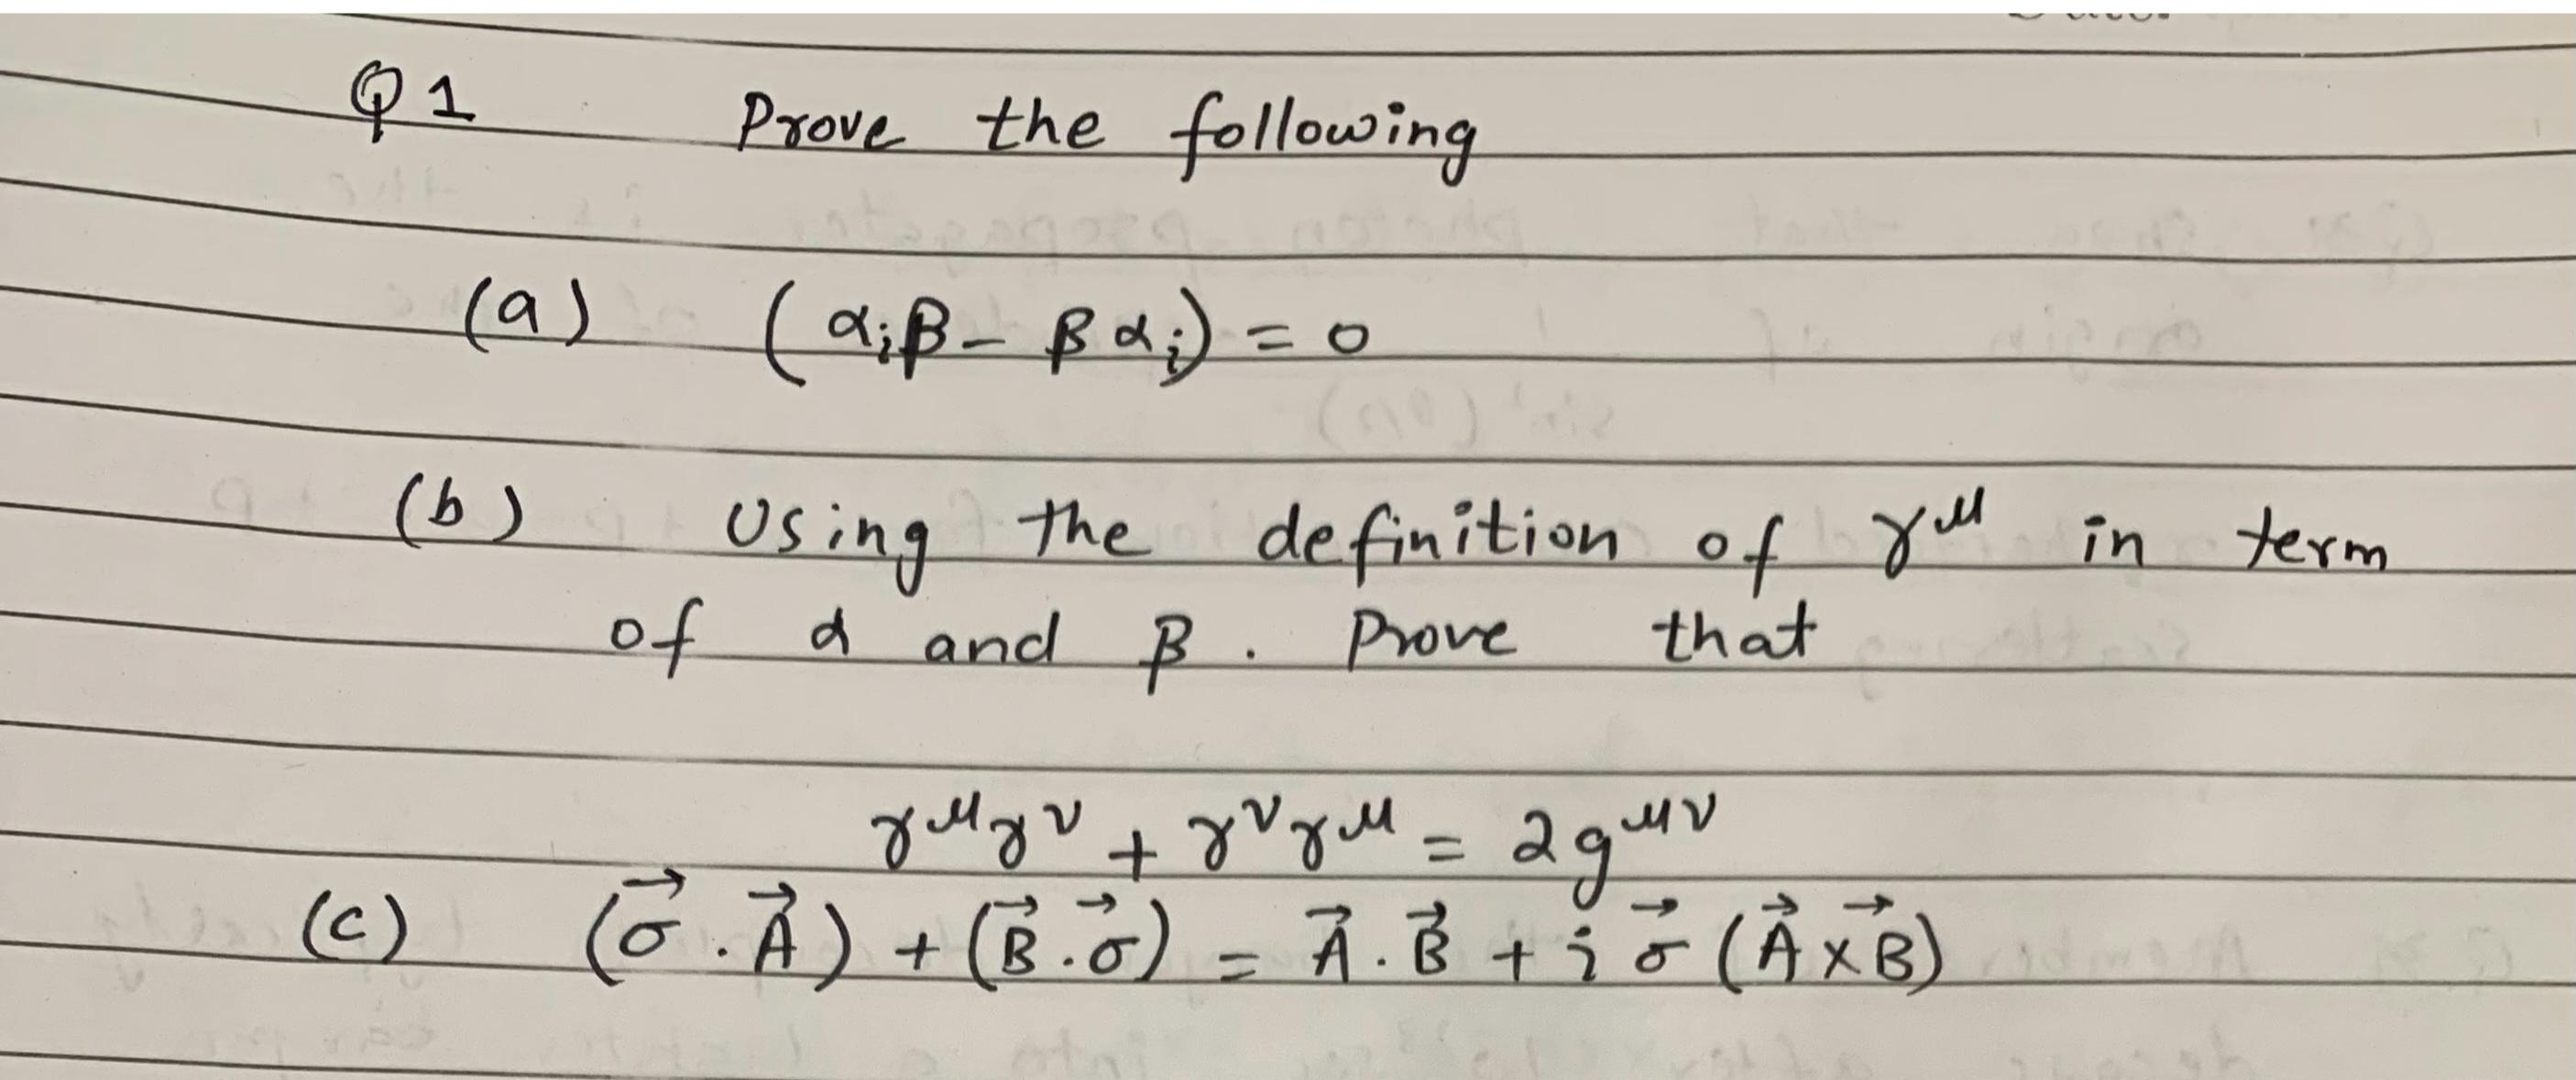 Q1 Prove the following
(a) (αᵢβ - βαᵢ) = 0
(b) Using the definition of γ^μ in term
of α and β. Prove that
γ^μγ^ν + γ^νγ^μ = 2g^μν
(c) (σ⃗.A⃗) + (B⃗.σ⃗) = A⃗.B⃗ + i σ⃗ (A⃗×B⃗)